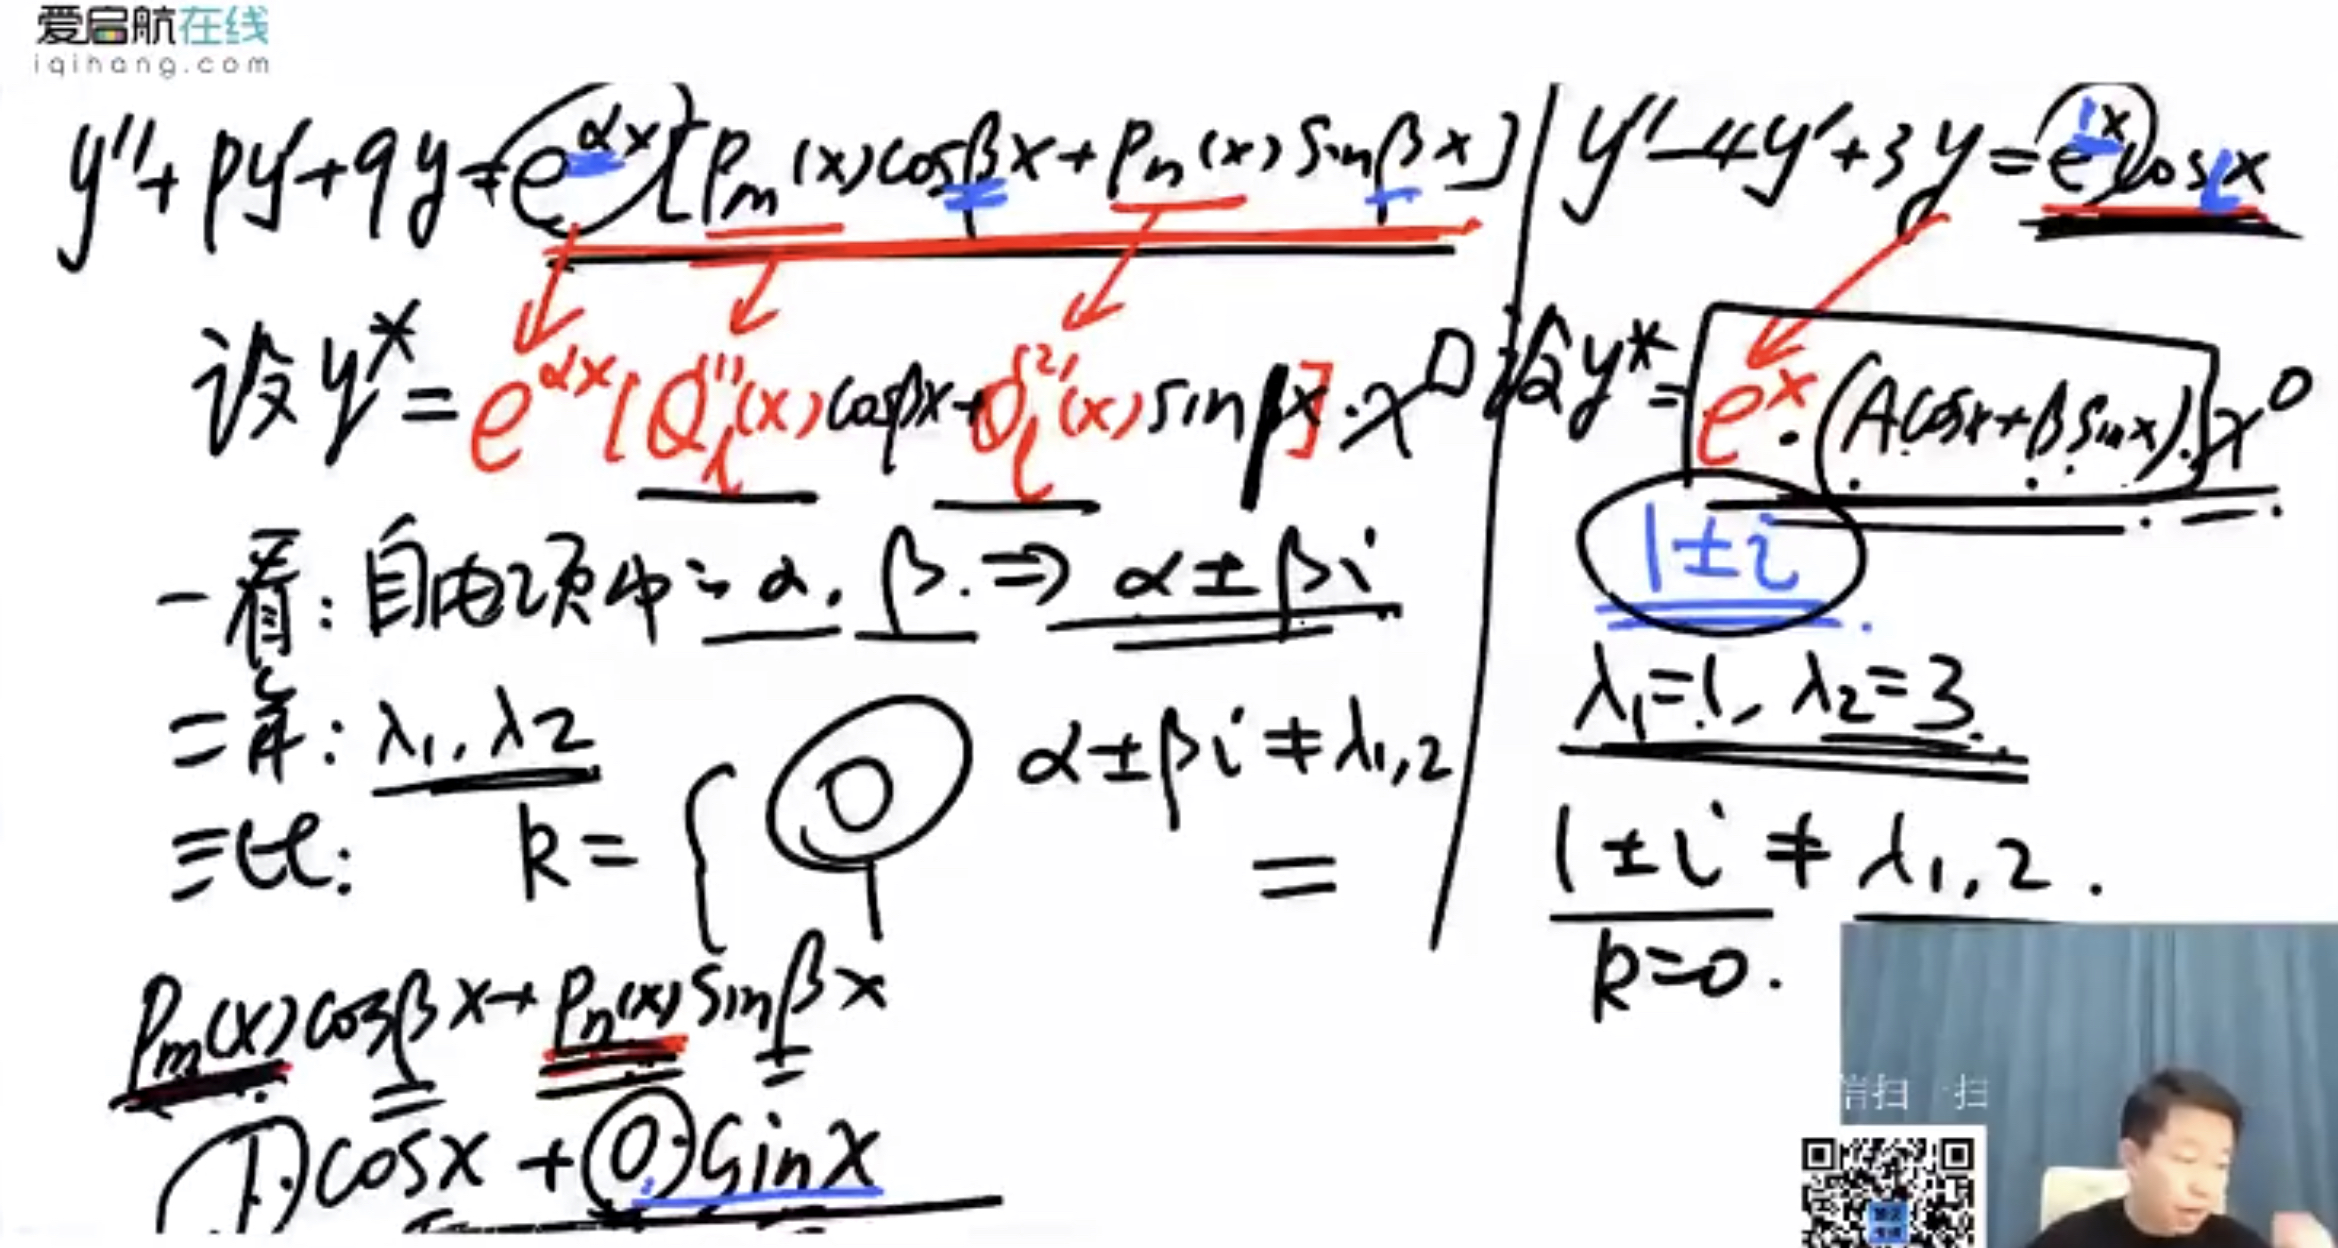 爱启航在线
iqihang.com
y''+py'+qy=e^{αx}[P_m(x)cosβx+P_n(x)sinβx]
设y*=e^{αx}[Q_l^{(1)}(x)cosβx+Q_l^{(2)}(x)sinβx]·x^k
一看:自由项中α,β.⇒α±βi
二算:λ1,λ2
三比: k={0 α±βi≠λ1,2
=
P_m(x)cosβx+P_n(x)sinβx
1·cosx+0·sinx
y''-4y'+3y=e^{1x}cos1x
设y*=e^x·(Acosx+Bsinx)·x^0
1±i
λ1=1, λ2=3.
1±i≠λ1,2.
k=0.
信扫一扫